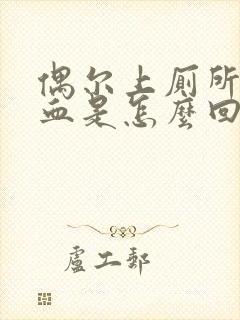 偶尔上厕所
血是怎麼回
盧工郵